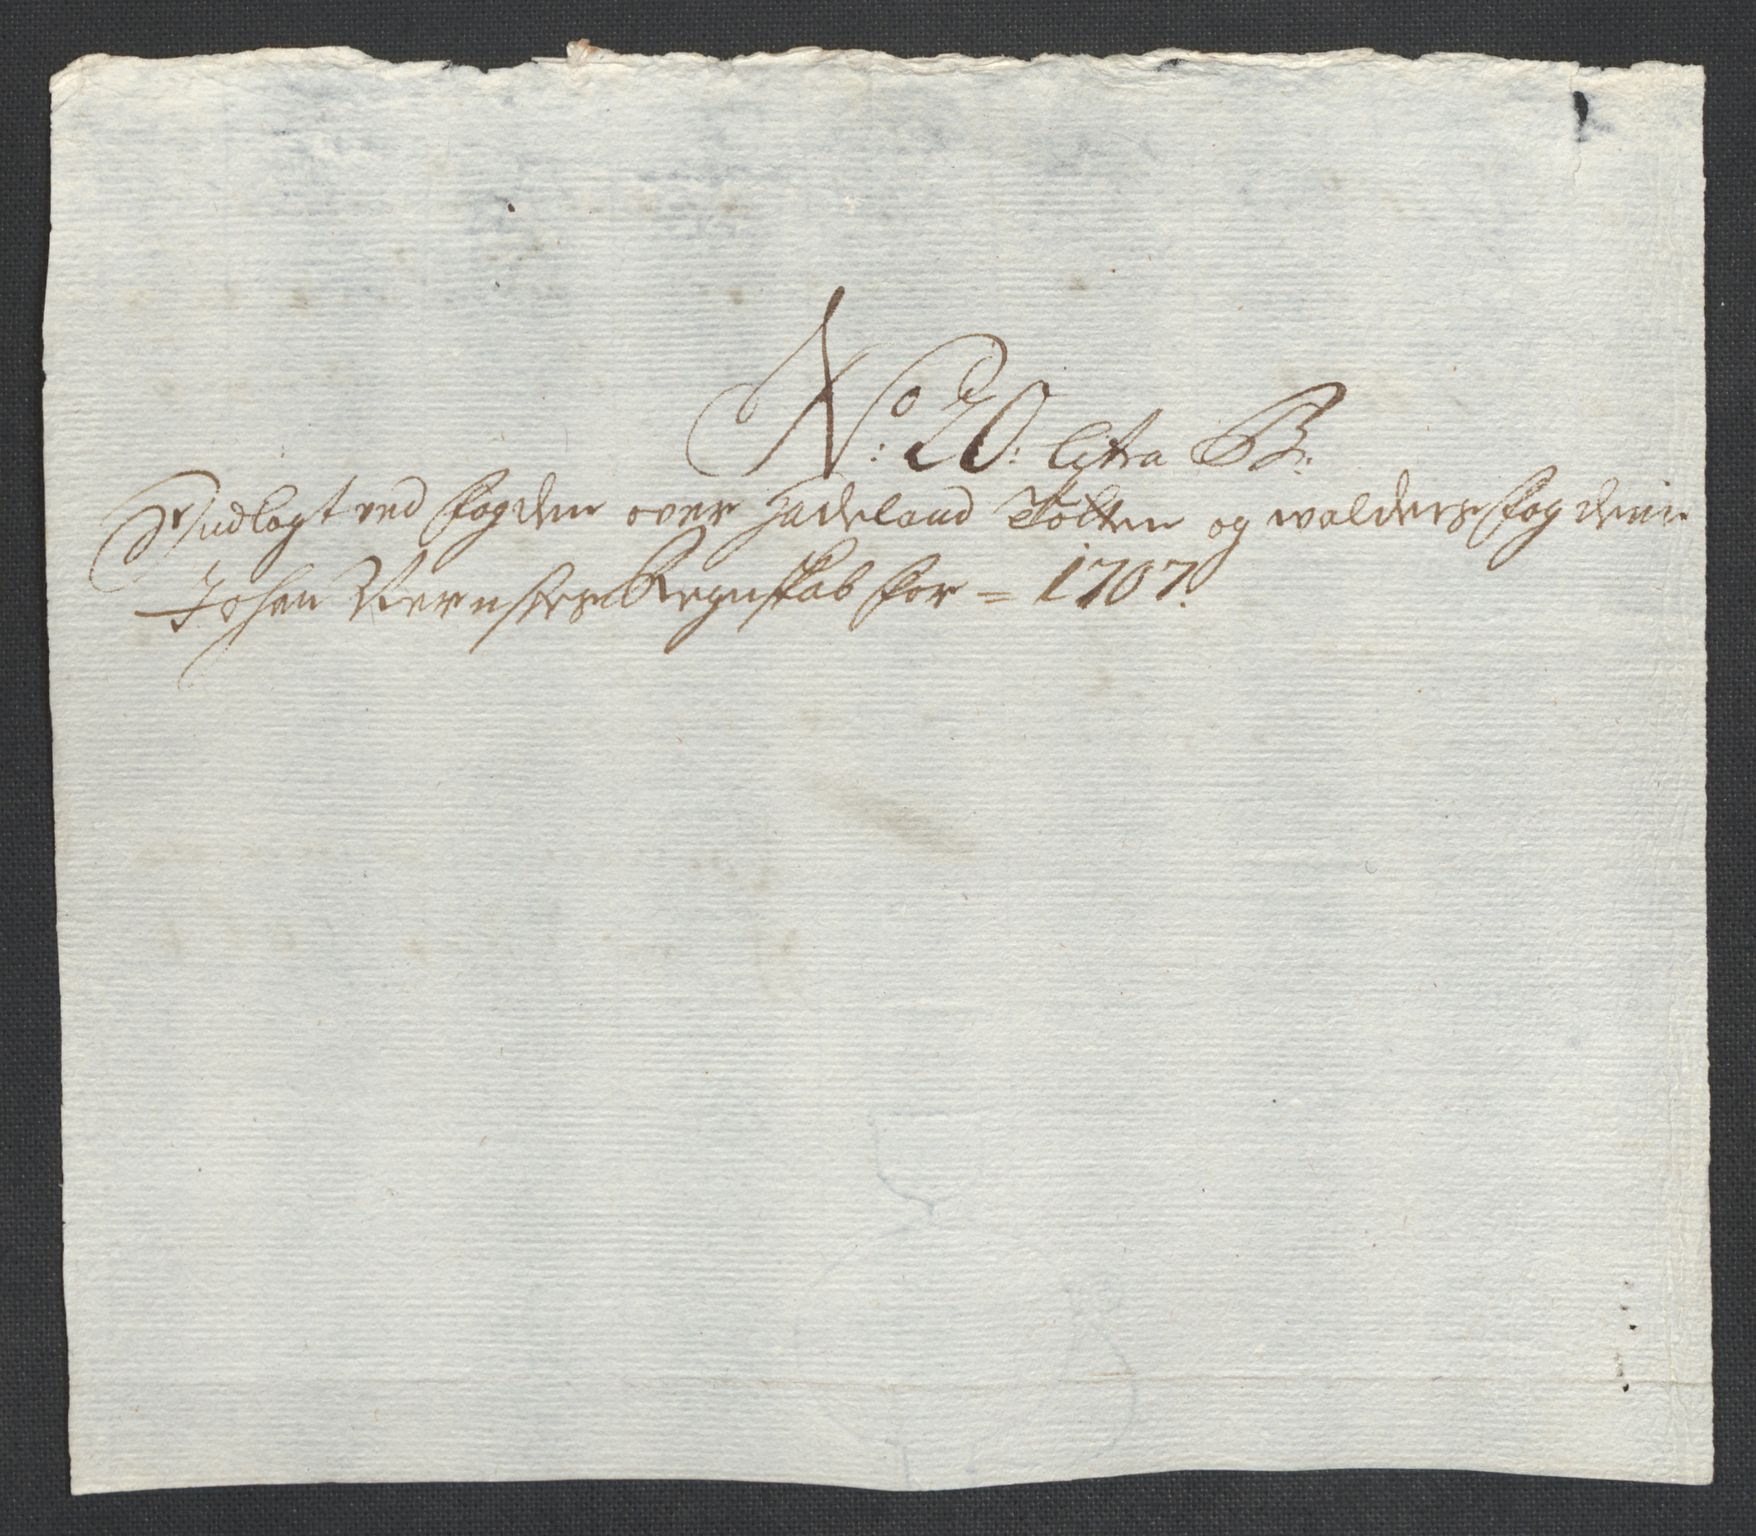 No: 20: Litra B:
Er indlagt ved fogden over Hadeland Totten og walders fogderie
Johan Vernstes Regnskab for = 1707.